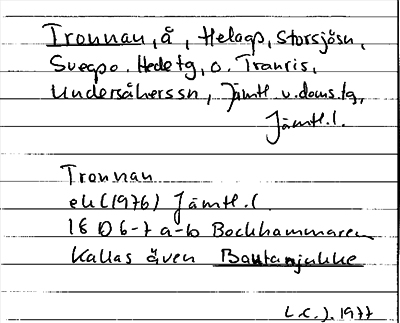 Tronnan, å, Helags, Storsjösn,
Svegpo. Hede tg, o. Tranris,
Undersåkerssn, Jämtl v. doms. tg,
Jämtl. l.
Tronnan
ek (1976) Jämtl. l
18 D 6-7 a-b Bockhammaren
Kallas även Bautanjukke
L.C.J. 1977